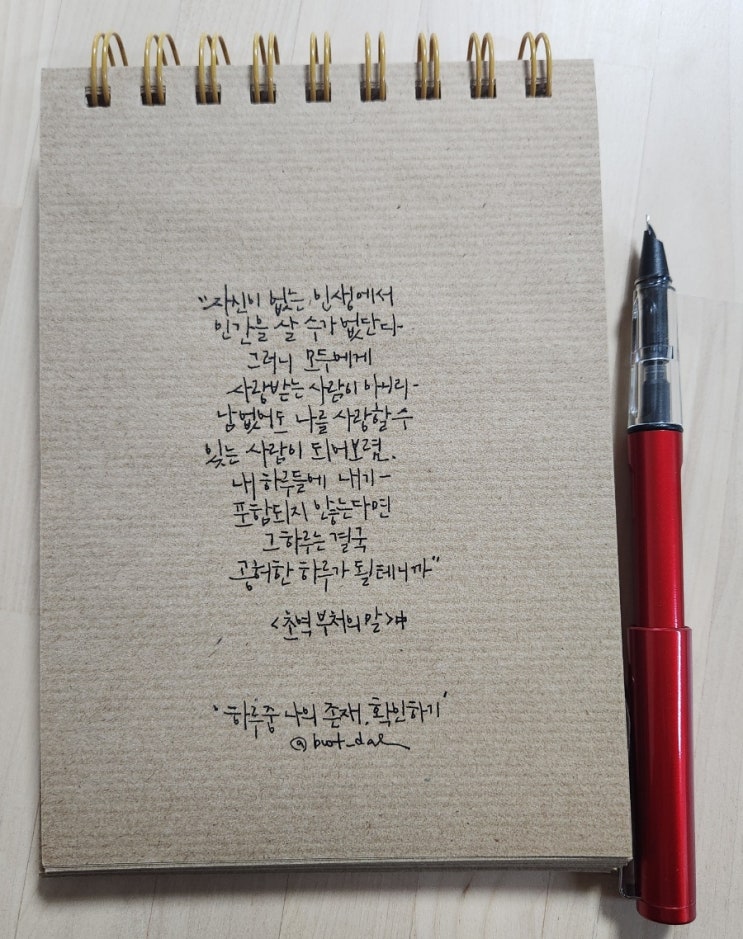 "자신이 없는 인생에서
인간을 살 수가 없단다
그러니 모두에게
사랑받는 사람이 아니라
남 없어도 나를 사랑할 수
있는 사람이 되어보렴.
내 하루들에 내가
포함되지 않는다면
그 하루는 결국
공허한 하루가 될테니까"
<초역 부처의 말>中
'하루중 나의 존재, 확인하기'